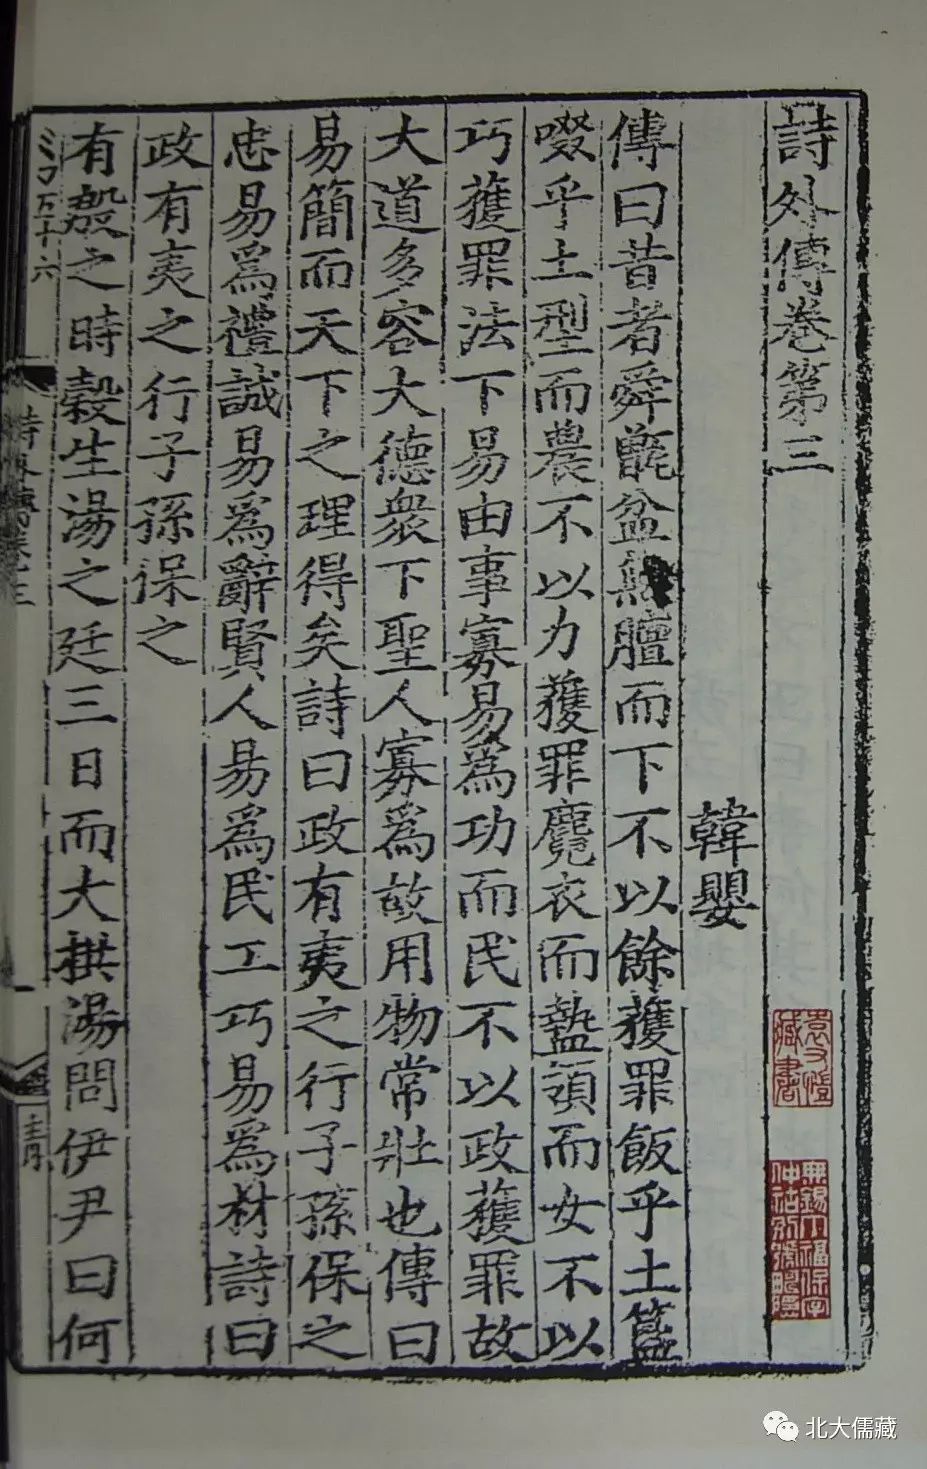 詩外傳卷第三
韓嬰
傳曰昔者舜甑盆無膻而下不以餘獲罪飯乎土簋
啜乎土型而農不以力獲罪麑衣而盩領而女不以
巧獲罪法下易由事寡易為功而民不以政獲罪故
大道多容大德衆下聖人寡爲故用物常壯也傳曰
易簡而天下之理得矣詩曰政有夷之行子孫保之
忠易爲禮誠易爲辭賢人易爲民工巧易爲材詩曰
政有夷之行子孫保之
有殷之時榖生湯之廷三日而大拱湯問伊尹曰何
袁又愷
藏書
無錫丁福保字
仲祜別號疇隱
北大儒藏